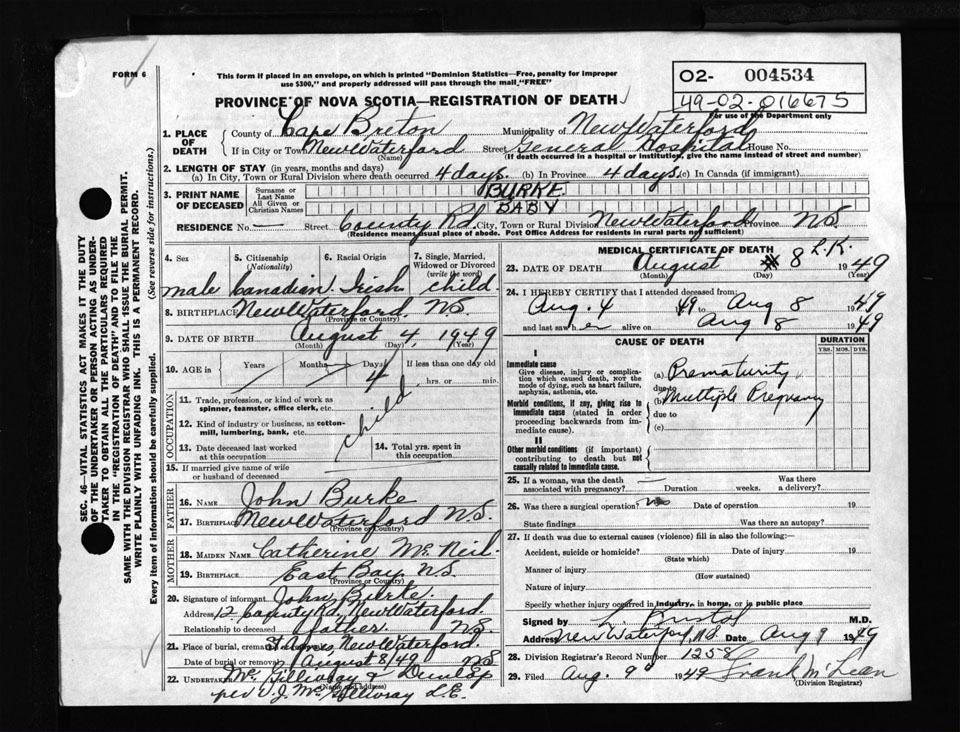 FORM 6
This form if placed in an envelope, on which is printed "Dominion Statistics—Free, penalty for improper
use $300," and properly addressed will pass through the mail "FREE"
O2- 004534
49-02-016675
For use of the Department only
PROVINCE OF NOVA SCOTIA—REGISTRATION OF DEATH
1. PLACE OF DEATH
County of Cape Breton Municipality of New Waterford
If in City or Town New Waterford Street General Hospital House No.
(Name) (If death occurred in a hospital or institution, give the name instead of street and number)
2. LENGTH OF STAY (in years, months and days)
(a) In City, Town or Rural Division where death occurred 4 days. (b) In Province 4 days. (c) In Canada (if immigrant)
3. PRINT NAME OF DECEASED
Surname or Last Name BURKE
All Given or Christian Names BABY
RESIDENCE No. — Street County Rd. City, Town or Rural Division New Waterford Province N.S.
(Residence means usual place of abode. Post Office Address for residents in rural parts not sufficient)
4. Sex
male
5. Citizenship (Nationality)
Canadian
6. Racial Origin
Irish
7. Single, Married, Widowed or Divorced (write the word)
child.
8. BIRTHPLACE New Waterford. N.S.
(Province or Country)
9. DATE OF BIRTH August 4, 1949
(Month) (Day) (Year)
10. AGE in Years Months Days 4 If less than one day old
hrs. or min.
OCCUPATION
11. Trade, profession, or kind of work as
spinner, teamster, office clerk, etc.
12. Kind of industry or business, as cotton-
mill, lumbering, bank, etc.
child
13. Date deceased last worked
at this occupation
14. Total yrs. spent in
this occupation
15. If married give name of wife
or husband of deceased
FATHER
16. NAME John Burke
17. BIRTHPLACE New Waterford N.S.
(Province or Country)
MOTHER
18. MAIDEN NAME Catherine McNeil
19. BIRTHPLACE East Bay N.S.
(Province or Country)
20. Signature of informant John Burke.
Address 12 County Rd, New Waterford.
Relationship to deceased father. N.S.
21. Place of burial, New Waterford.
Date of burial or removal August 8/49 N.S.
22. UNDERTAKER McGillivray & Dunlop
(Name and address)
per J. McGillivray L.E.
MEDICAL CERTIFICATE OF DEATH
L.K.
23. DATE OF DEATH August 8 1949
(Month) (Day) (Year)
24. I HEREBY CERTIFY that I attended deceased from:
Aug. 4 49 to Aug 8 1949
and last saw her alive on Aug 8 1949
CAUSE OF DEATH
DURATION
YRS. MOS. DYS.
I
Immediate cause
Give disease, injury or complica-
tion which caused death, NOT the
mode of dying, such as heart failure,
asphyxia, asthenia, etc.
(a) Prematurity
due to
(b) Multiple Pregnancy
Morbid conditions, if any, giving rise to
immediate cause (stated in order
proceeding backwards from im-
mediate cause).
due to
(c)
II
Other morbid conditions (if important)
contributing to death but not
causally related to immediate cause.
25. If a woman, was the death
associated with pregnancy? — Duration weeks. Was there a delivery?
26. Was there a surgical operation? no Date of operation 19
State findings Was there an autopsy?
27. If death was due to external causes (violence) fill in also the following:—
Accident, suicide or homicide? Date of injury 19
(State which)
Manner of injury
(How sustained)
Nature of injury
Specify whether injury occurred in industry, in home, or in public place
Signed by M.D.
Address New Waterford, N.S. Date Aug 9 1949
28. Division Registrar's Record Number 1258
29. Filed Aug. 9th 1949 Frank McLean
(Division Registrar)
SEC. 46—VITAL STATISTICS ACT MAKES IT THE DUTY
OF THE UNDERTAKER OR PERSON ACTING AS UNDER-
TAKER TO OBTAIN ALL THE PARTICULARS REQUIRED
IN THE "REGISTRATION OF DEATH" AND TO FILE THE
SAME WITH THE DIVISION REGISTRAR WHO SHALL ISSUE THE BURIAL PERMIT.
WRITE PLAINLY WITH UNFADING INK. THIS IS A PERMANENT RECORD.
Every item of information should be carefully supplied. (See reverse side for instructions.)